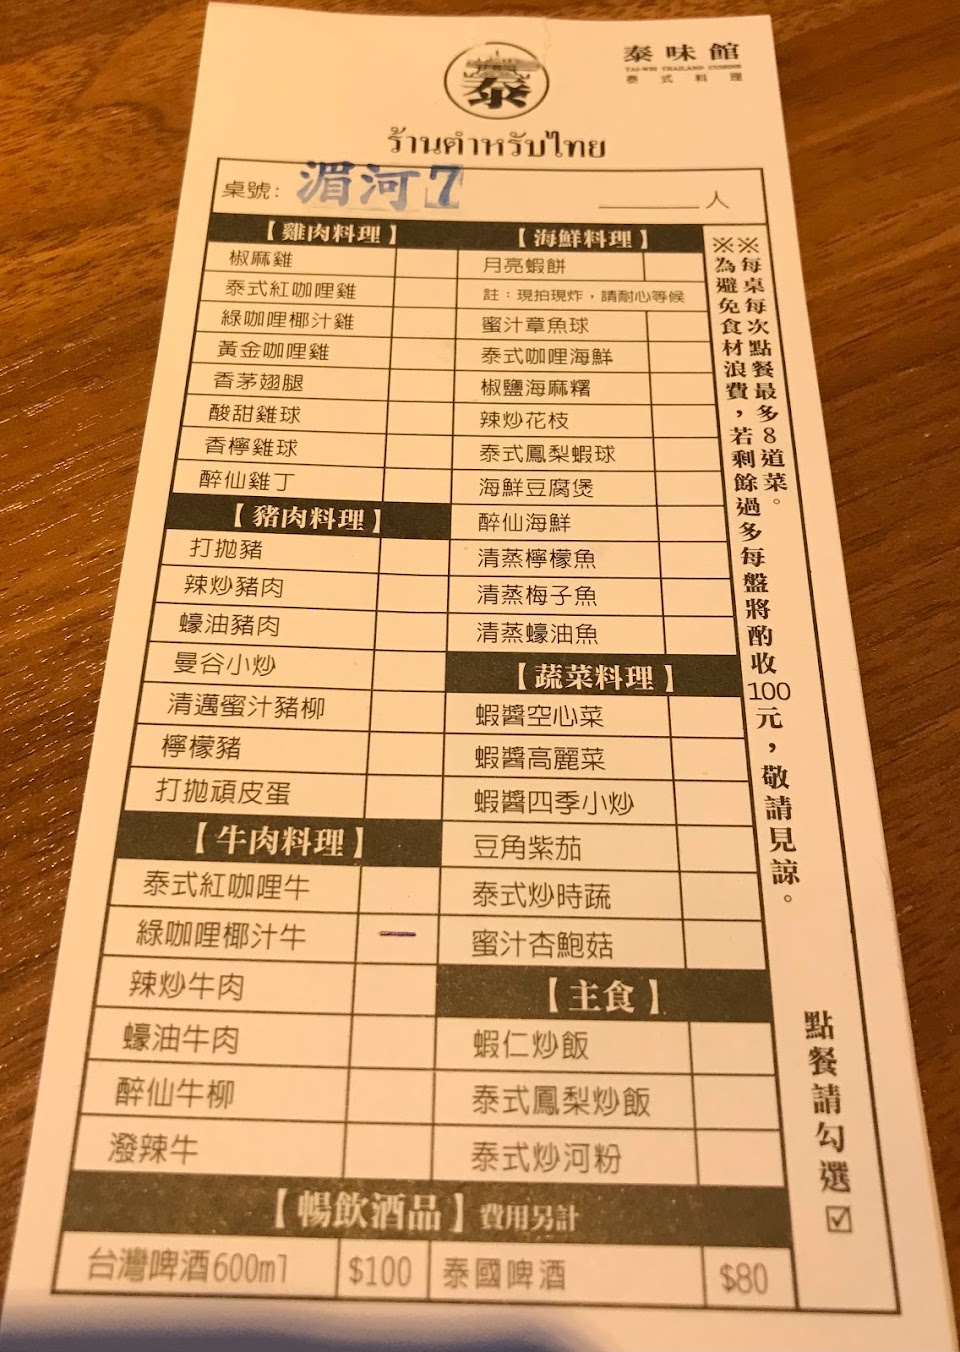 泰
泰味館
TAI-WEI THAILAND CUISINE
泰式料理
ร้านตำหรับไทย
桌號: 湄河 7 人
【雞肉料理】
椒麻雞
泰式紅咖哩雞
綠咖哩椰汁雞
黃金咖哩雞
香茅翅腿
酸甜雞球
香檸雞球
醉仙雞丁
【豬肉料理】
打拋豬
辣炒豬肉
蠔油豬肉
曼谷小炒
清邁蜜汁豬柳
檸檬豬
打拋頑皮蛋
【牛肉料理】
泰式紅咖哩牛
綠咖哩椰汁牛 一
辣炒牛肉
蠔油牛肉
醉仙牛柳
潑辣牛
【海鮮料理】
月亮蝦餅
註：現拍現炸，請耐心等候
蜜汁章魚球
泰式咖哩海鮮
椒鹽海麻糬
辣炒花枝
泰式鳳梨蝦球
海鮮豆腐煲
醉仙海鮮
清蒸檸檬魚
清蒸梅子魚
清蒸蠔油魚
【蔬菜料理】
蝦醬空心菜
蝦醬高麗菜
蝦醬四季小炒
豆角紫茄
泰式炒時蔬
蜜汁杏鮑菇
【主食】
蝦仁炒飯
泰式鳳梨炒飯
泰式炒河粉
【暢飲酒品】費用另計
台灣啤酒600ml $100 泰國啤酒 $80
※每桌每次點餐最多8道菜。
※為避免食材浪費，若剩餘過多每盤將酌收100元，敬請見諒。
點餐請勾選☑